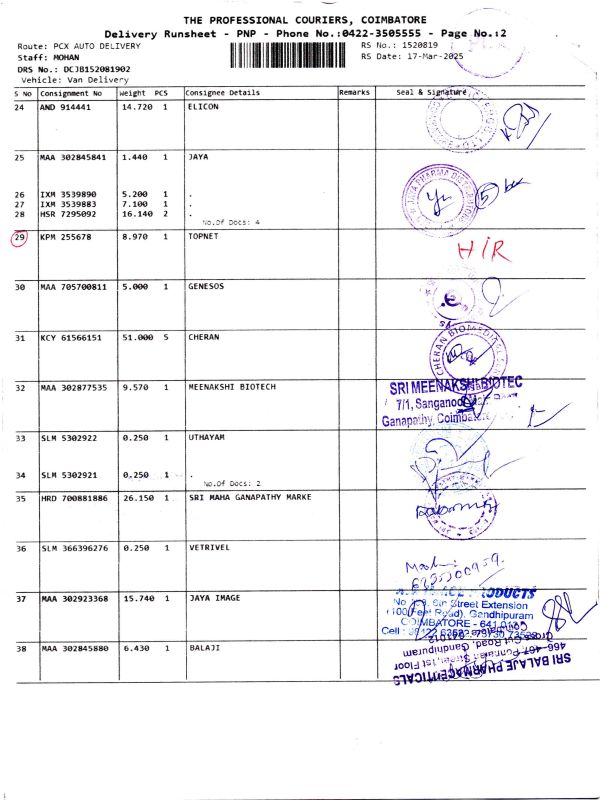 THE PROFESSIONAL COURIERS, COIMBATORE
Delivery Runsheet - PNP - Phone No.:0422-3505555 - Page No.:2
Route: PCX AUTO DELIVERY RS No.: 1520819
Staff: MOHAN RS Date: 17-Mar-2025
DRS No.: DCJB152081902
Vehicle: Van Delivery
S No Consignment No Weight PCS Consignee Details Remarks Seal & Signature
24 AND 914441 14.720 1 ELICON
25 MAA 302845841 1.440 1 JAYA
26 IXM 3539890 5.200 1 .
27 IXM 3539883 7.100 1 .
28 HSR 7295092 16.140 2 .
No.Of Docs: 4
29 KPM 255678 8.970 1 TOPNET H/R
30 MAA 705700811 5.000 1 GENESOS
31 KCY 61566151 51.000 5 CHERAN
CHERAN BIOMEDICAL
32 MAA 302877535 9.570 1 MEENAKSHI BIOTECH
SRI MEENAKSHI BIOTEC
7/1, Sanganoor
Ganapathy, Coimbatore
33 SLM 5302922 0.250 1 UTHAYAM
34 SLM 5302921 0.250 1 .
No.Of Docs: 2
35 HRD 700881886 26.150 1 SRI MAHA GANAPATHY MARKE
36 SLM 366396276 0.250 1 VETRIVEL
37 MAA 302923368 15.740 1 JAYA IMAGE
PRODUCTS
Street Extension
(100 Feet Road), Gandhipuram
COIMBATORE - 641
Cell :
38 MAA 302845880 6.430 1 BALAJI
Gandhipuram
Street, 1st Floor
SRI BALAJE PHARMACEUTICALS